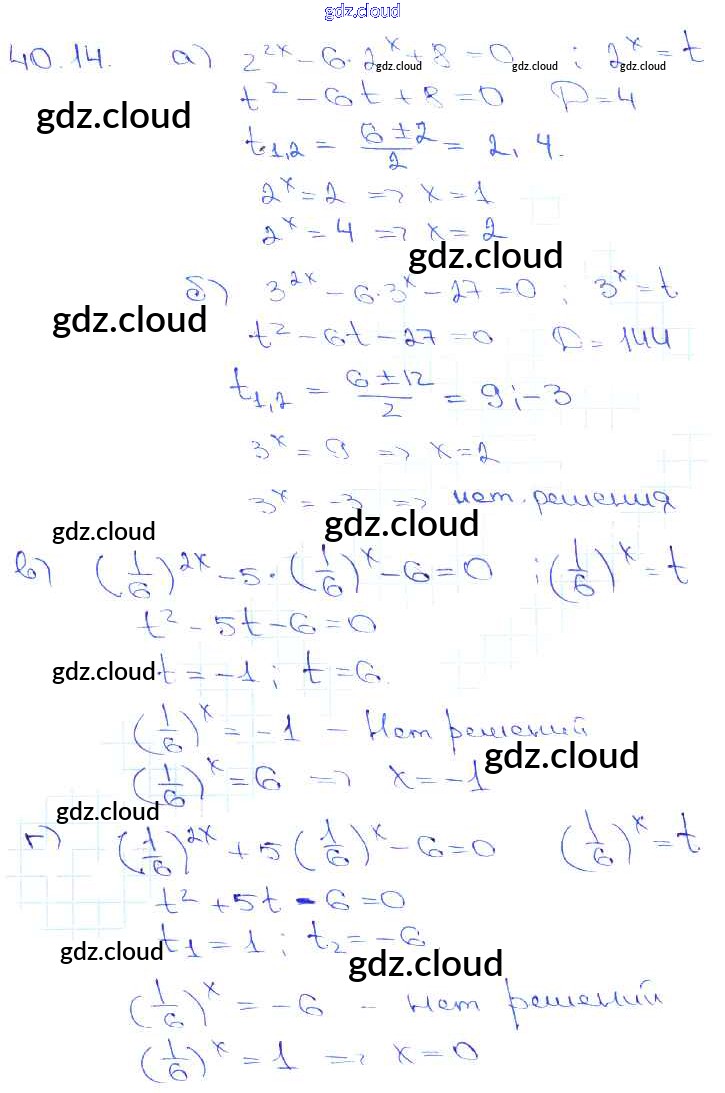 gdz.cloud
40.14. а) 2^{2x} - 6·2^x + 8 = 0 ; 2^x = t
gdz.cloud gdz.cloud gdz.cloud
t² - 6t + 8 = 0 D = 4
gdz.cloud
t_{1,2} = \frac{6 ± 2}{2} = 2, 4.
2^x = 2 => x = 1
2^x = 4 => x = 2
gdz.cloud
б) 3^{2x} - 6·3^x - 27 = 0 ; 3^x = t
gdz.cloud
t² - 6t - 27 = 0 D = 144
t_{1,2} = \frac{6 ± 12}{2} = 9; -3
3^x = 9 => x = 2
3^x = -3 => нет решения
gdz.cloud gdz.cloud
в) (\frac{1}{6})^{2x} - 5·(\frac{1}{6})^x - 6 = 0 ; (\frac{1}{6})^x = t
t² - 5t - 6 = 0
gdz.cloud
t = -1 ; t = 6
(\frac{1}{6})^x = -1 - Нет решений
gdz.cloud
(\frac{1}{6})^x = 6 => x = -1
gdz.cloud
г) (\frac{1}{6})^{2x} + 5(\frac{1}{6})^x - 6 = 0 (\frac{1}{6})^x = t
t² + 5t - 6 = 0
t_1 = 1 ; t_2 = -6
gdz.cloud gdz.cloud
(\frac{1}{6})^x = -6 - нет решений
(\frac{1}{6})^x = 1 => x = 0